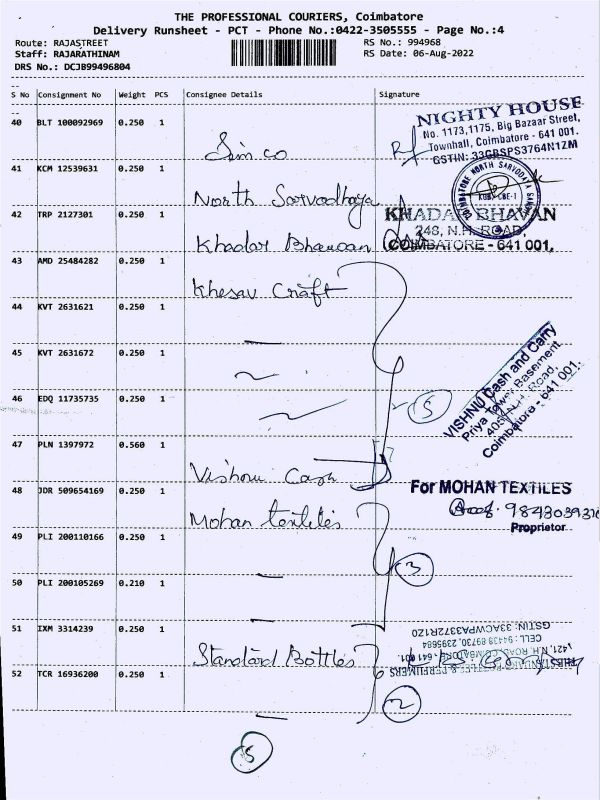 THE PROFESSIONAL COURIERS, Coimbatore
Delivery Runsheet - PCT - Phone No.:0422-3505555 - Page No.:4
Route: RAJASTREET RS No.: 994968
Staff: RAJARATHINAM RS Date: 06-Aug-2022
DRS No.: DCJB99496804
S No Consignment No Weight PCS Consignee Details Signature
40 BLT 100092969 0.250 1
Simco
NIGHTY HOUSE
No. 1173,1175, Big Bazaar Street,
Townhall, Coimbatore - 641 001.
GSTIN: 33GBSPS3764N1ZM
41 KCM 12539631 0.250 1
North Sarvodhaya
COIMBATORE NORTH SARVODAYA
42 TRP 2127301 0.250 1
Khadar Bhavan
KHADAR BHAVAN
248, N.H. ROAD,
COIMBATORE - 641 001.
43 AMD 25484282 0.250 1
Khesav Craft
44 KVT 2631621 0.250 1
45 KVT 2631672 0.250 1
46 EDQ 11735735 0.250 1
5
VISHNU Cash and Carry
Priya Tower Basement
405, N.H. Road,
Coimbatore - 641 001.
47 PLN 1397972 0.560 1
Vishnu Cash
48 JDR 509654169 0.250 1
Mohan textiles
For MOHAN TEXTILES
Proprietor
49 PLI 200110166 0.250 1
3
50 PLI 200105269 0.210 1
51 IXM 3314239 0.250 1
Standard Bottles
GSTIN: 33ACWPA3372R1Z0
CELL : 94438 89730, 2395684
1421, N.H. ROAD, COIMBATORE - 641 001.
52 TCR 16936200 0.250 1
2
5